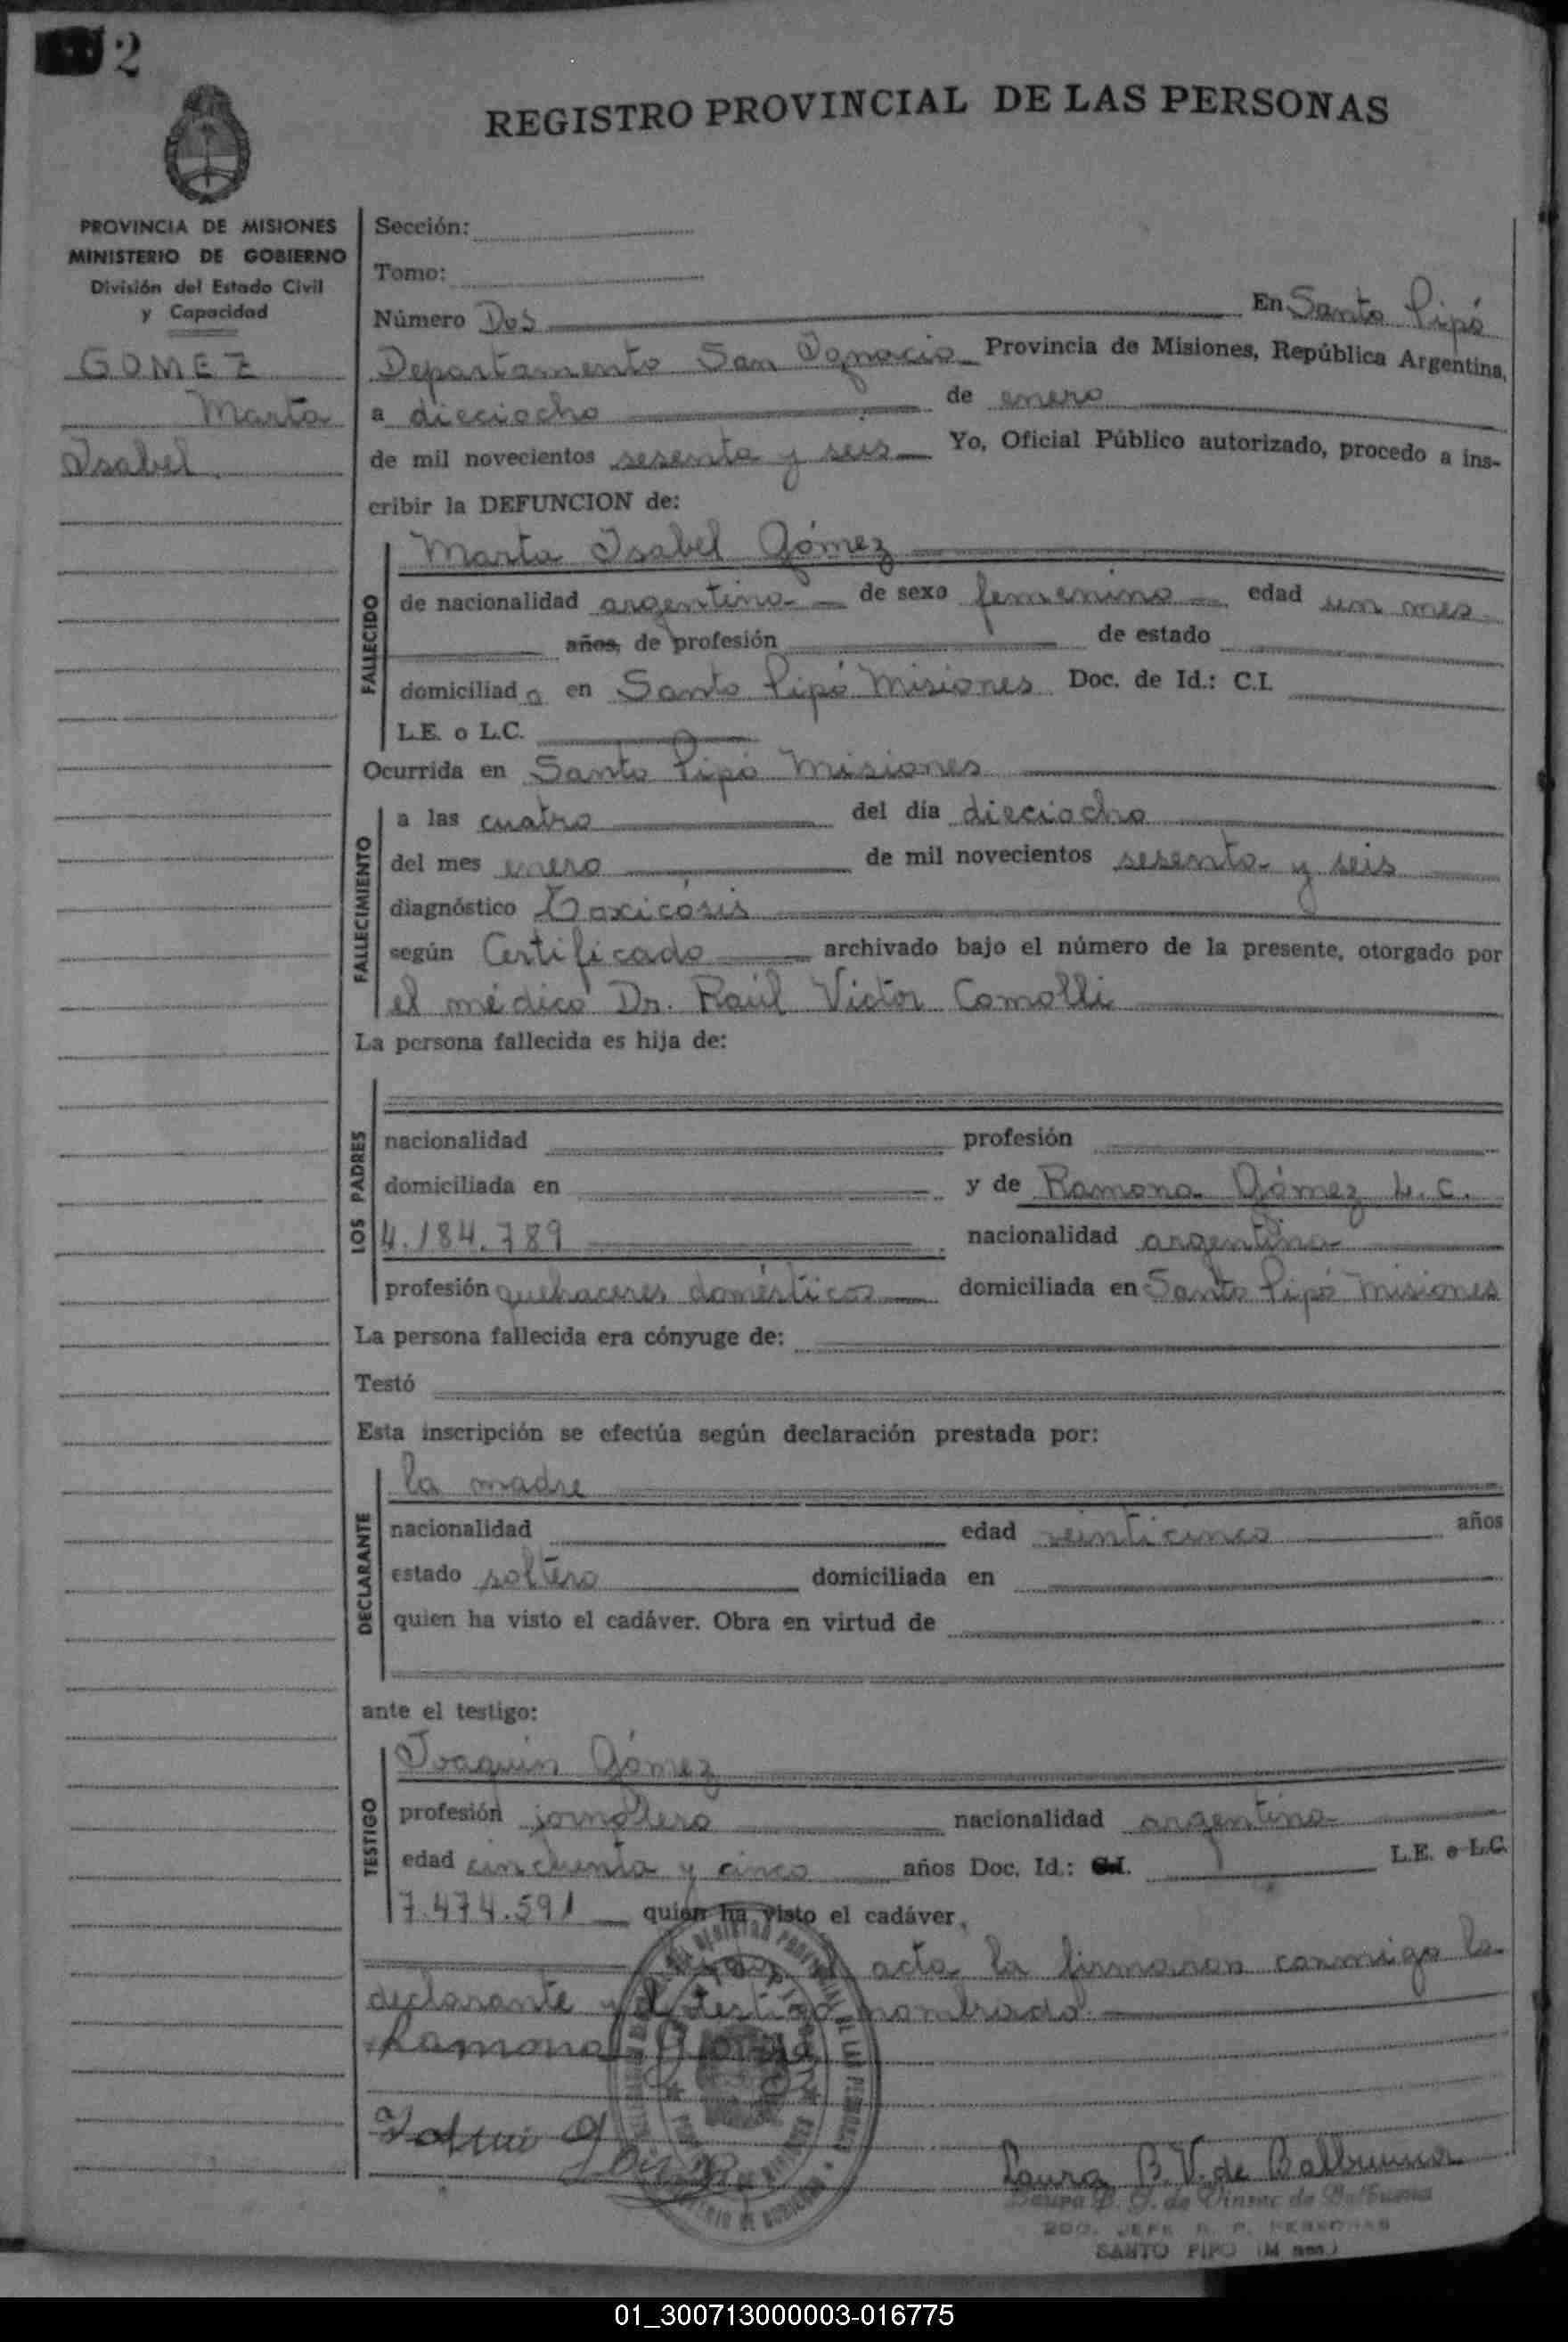 2
REGISTRO PROVINCIAL DE LAS PERSONAS
PROVINCIA DE MISIONES
MINISTERIO DE GOBIERNO
División del Estado Civil
y Capacidad
GOMEZ
Marta
Isabel
Sección:
Tomo:
Número Dos En Santo Pipó
Departamento San Ignacio Provincia de Misiones, República Argentina,
a dieciocho de enero
de mil novecientos sesenta y seis Yo, Oficial Público autorizado, procedo a ins-
cribir la DEFUNCION de:
Marta Isabel Gómez
FALLECIDO
de nacionalidad argentina de sexo femenino edad un mes
años, de profesión de estado
domiciliad a en Santo Pipó Misiones Doc. de Id.: C.I.
L.E. o L.C.
Ocurrida en Santo Pipó Misiones
FALLECIMIENTO
a las cuatro del día dieciocho
del mes enero de mil novecientos sesenta y seis
diagnóstico Toxicósis
según Certificado archivado bajo el número de la presente, otorgado por
el médico Dr. Raúl Victor Comolli
La persona fallecida es hija de:
LOS PADRES
nacionalidad profesión
domiciliada en y de Ramona Gómez L.C.
4.184.789 nacionalidad argentina
profesión quehaceres domésticos domiciliada en Santo Pipó Misiones
La persona fallecida era cónyuge de:
Testó
Esta inscripción se efectúa según declaración prestada por:
la madre
DECLARANTE
nacionalidad edad veinticinco años
estado soltera domiciliada en
quien ha visto el cadáver. Obra en virtud de
ante el testigo:
Joaquin Gómez
TESTIGO
profesión jornalero nacionalidad argentina
edad cincuenta y cinco años Doc. Id.: C.I. L.E. o L.C.
7.474.591 quien ha visto el cadáver.
acta la firmaron conmigo la
declarante y el testigo nombrado.
Ramona
Laura B. V. de Balbuena
Laura B. V. de Balbuena
2DO. JEFE R. P. PERSONAS
SANTO PIPO (M nes.)
01_300713000003-016775